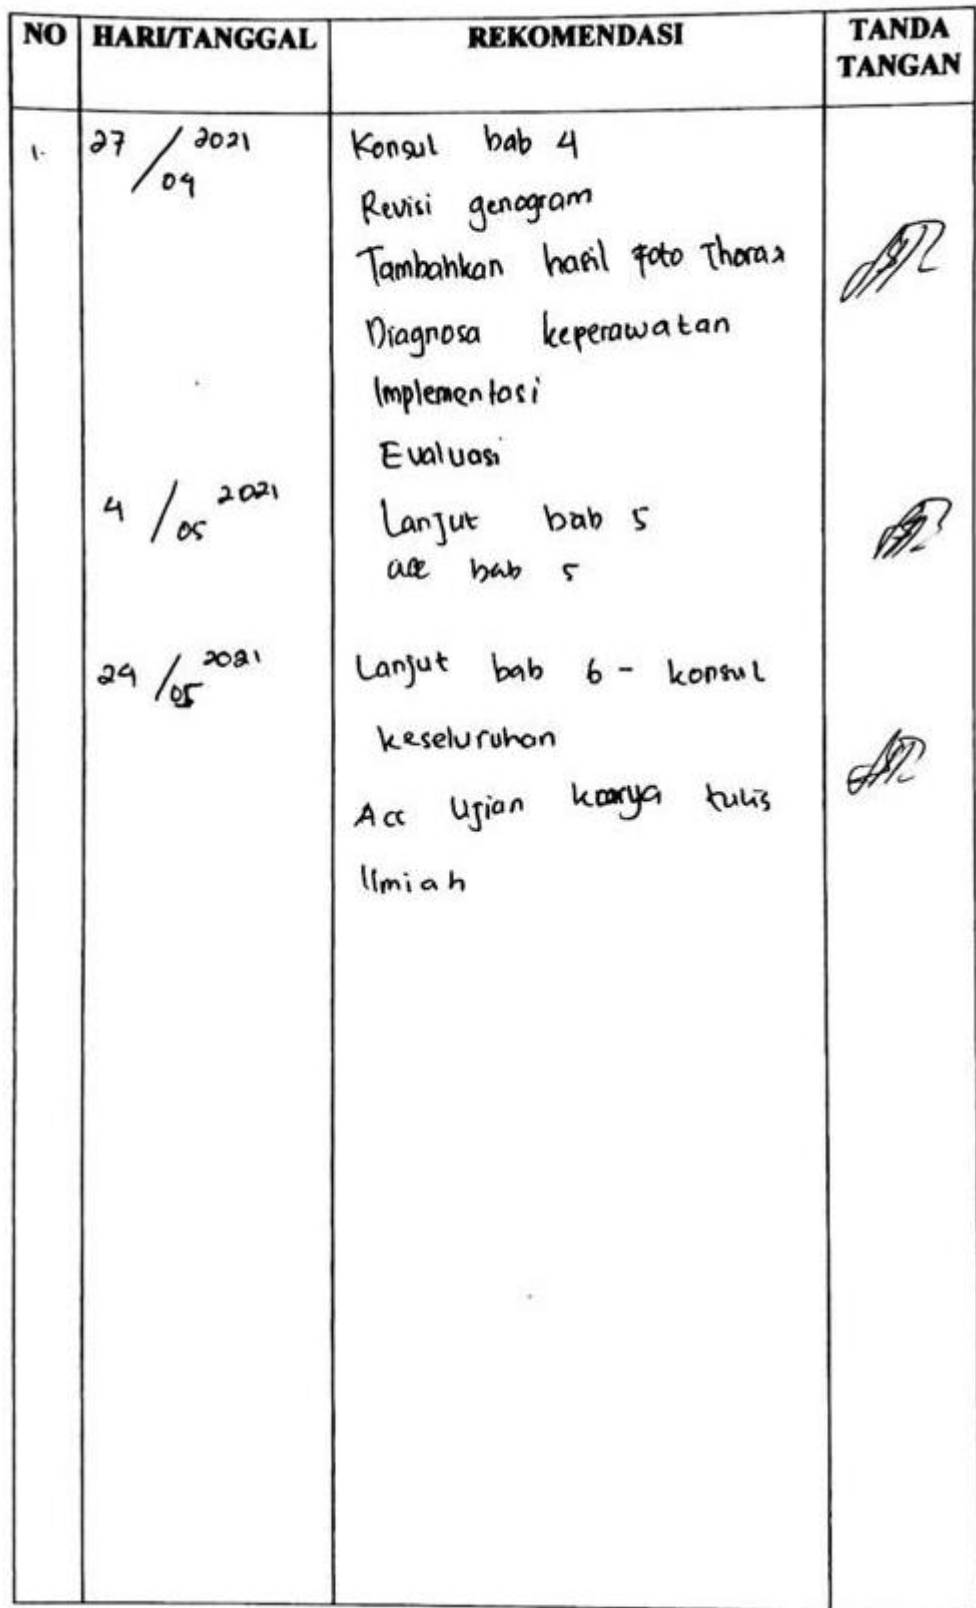 NO HARI/TANGGAL REKOMENDASI TANDA TANGAN
1. 27/04 2021 Konsul bab 4
Revisi genogram
Tambahkan hasil Foto Thorax
Diagnosa keperawatan
Implementasi
Evaluasi
4/05 2021 Lanjut bab 5
acc bab 5
24/05 2021 Lanjut bab 6 - konsul
keseluruhan
Acc Ujian karya tulis
Ilmiah